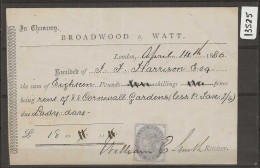 In Chancery.
BROADWOOD v. WATT.
London, April 14th 1880
Received of J. F. Harrison Esq.
the sum of Eighteen Pounds shillings pence
being rent of 28 Cornwall Gardens, less P. Tax
due Lady-day
£ 18 " "
William C. Smith Receiver.
13525